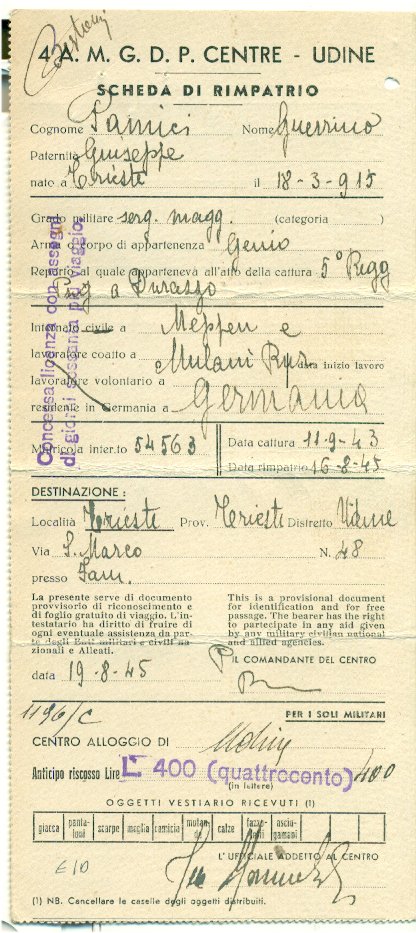 4 A. M. G. D. P. CENTRE - UDINE
SCHEDA DI RIMPATRIO
Cognome Pamici Nome Guerrino
Paternità Giuseppe
nato a Trieste il 18-3-915
Grado militare serg. magg. (categoria )
Arma o corpo di appartenenza Genio
Reparto al quale apparteneva all'atto della cattura 5° Regg
a Durazzo
Internato civile a Meppen e
lavoratore coatto a data inizio lavoro
lavoratore volontario a
residente in Germania a Germania
Matricola inter.to 54563 Data cattura 11-9-43
Data rimpatrio 16-8-45
Concessa licenza con assegni
di giorni sessanta più viaggio.
DESTINAZIONE :
Località Trieste Prov. Trieste Distretto Udine
Via S. Marco N. 48
presso Fam.
La presente serve di documento
provvisorio di riconoscimento e
di foglio gratuito di viaggio. L'in-
testatario ha diritto di fruire di
ogni eventuale assistenza da par-
te degli Enti militari e civili na-
zionali e Alleati.
This is a provisional document
for identification and for free
passage. The bearer has the right
to partecipate in any aid given
by any military civilian national
and allied agencies.
data 19-8-45
P IL COMANDANTE DEL CENTRO
1196/C
PER I SOLI MILITARI
CENTRO ALLOGGIO DI Udine
Anticipo riscosso Lire L. 400 (quattrocento) 400
(in lettere)
OGGETTI VESTIARIO RICEVUTI (1)
giacca panta-loni scarpe maglia camicia mutan-de calze fazzo-letti asciu-gamani
L'UFFICIALE ADDETTO AL CENTRO
(1) NB. Cancellare le caselle degli oggetti distribuiti.